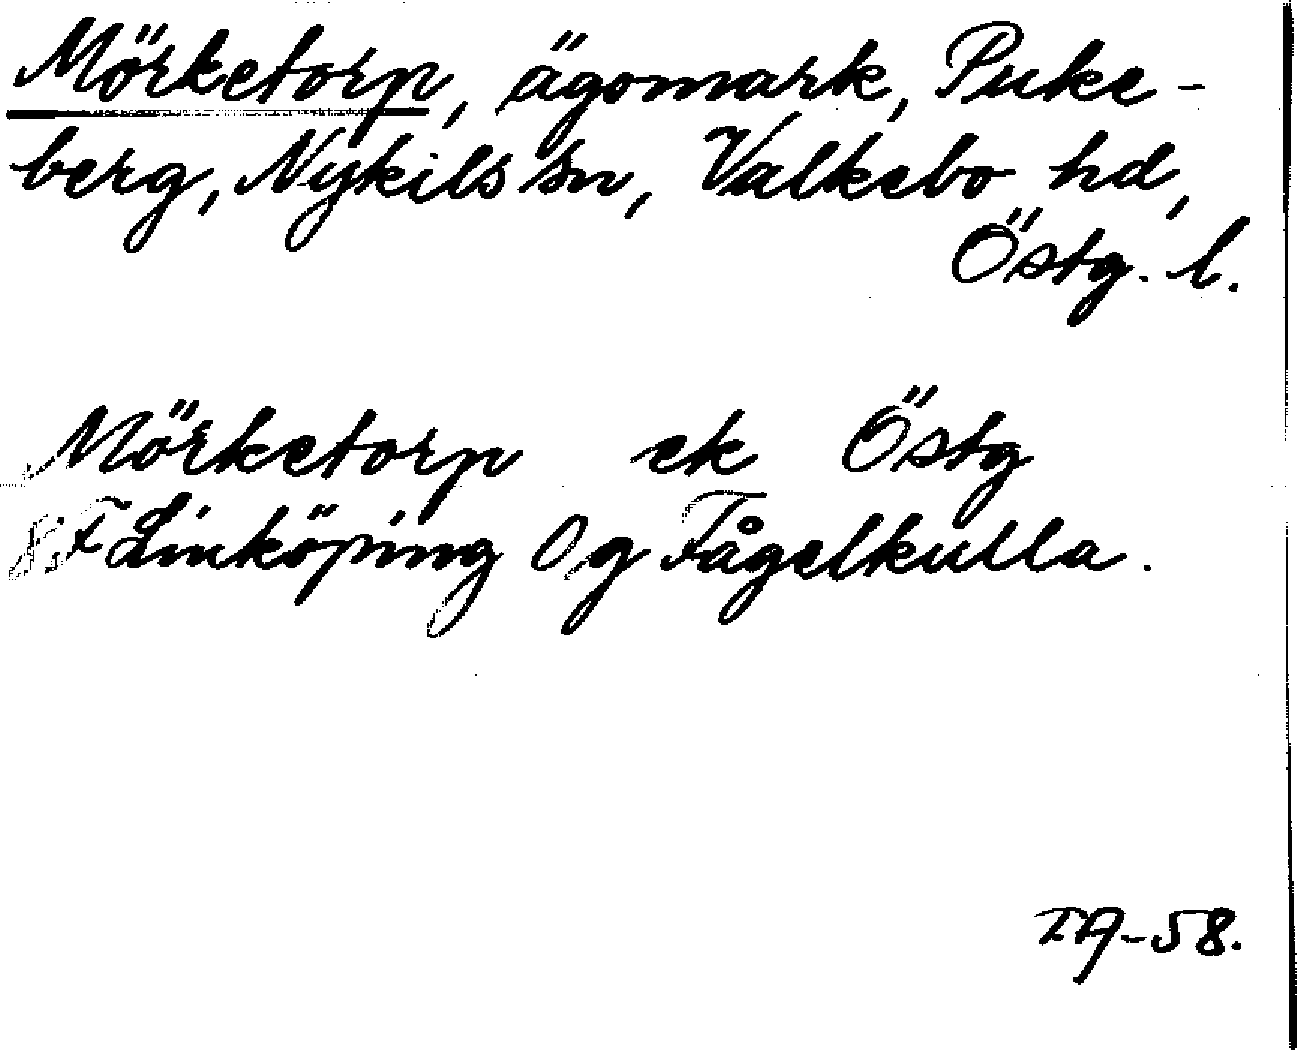 Mörketorp, ägomark, Puke-
berg, Nykils sn, Valkebo hd,
Östg. l.
Mörketorp ek Östg
8 F Linköping Og Fågelkulla.
TA-58.